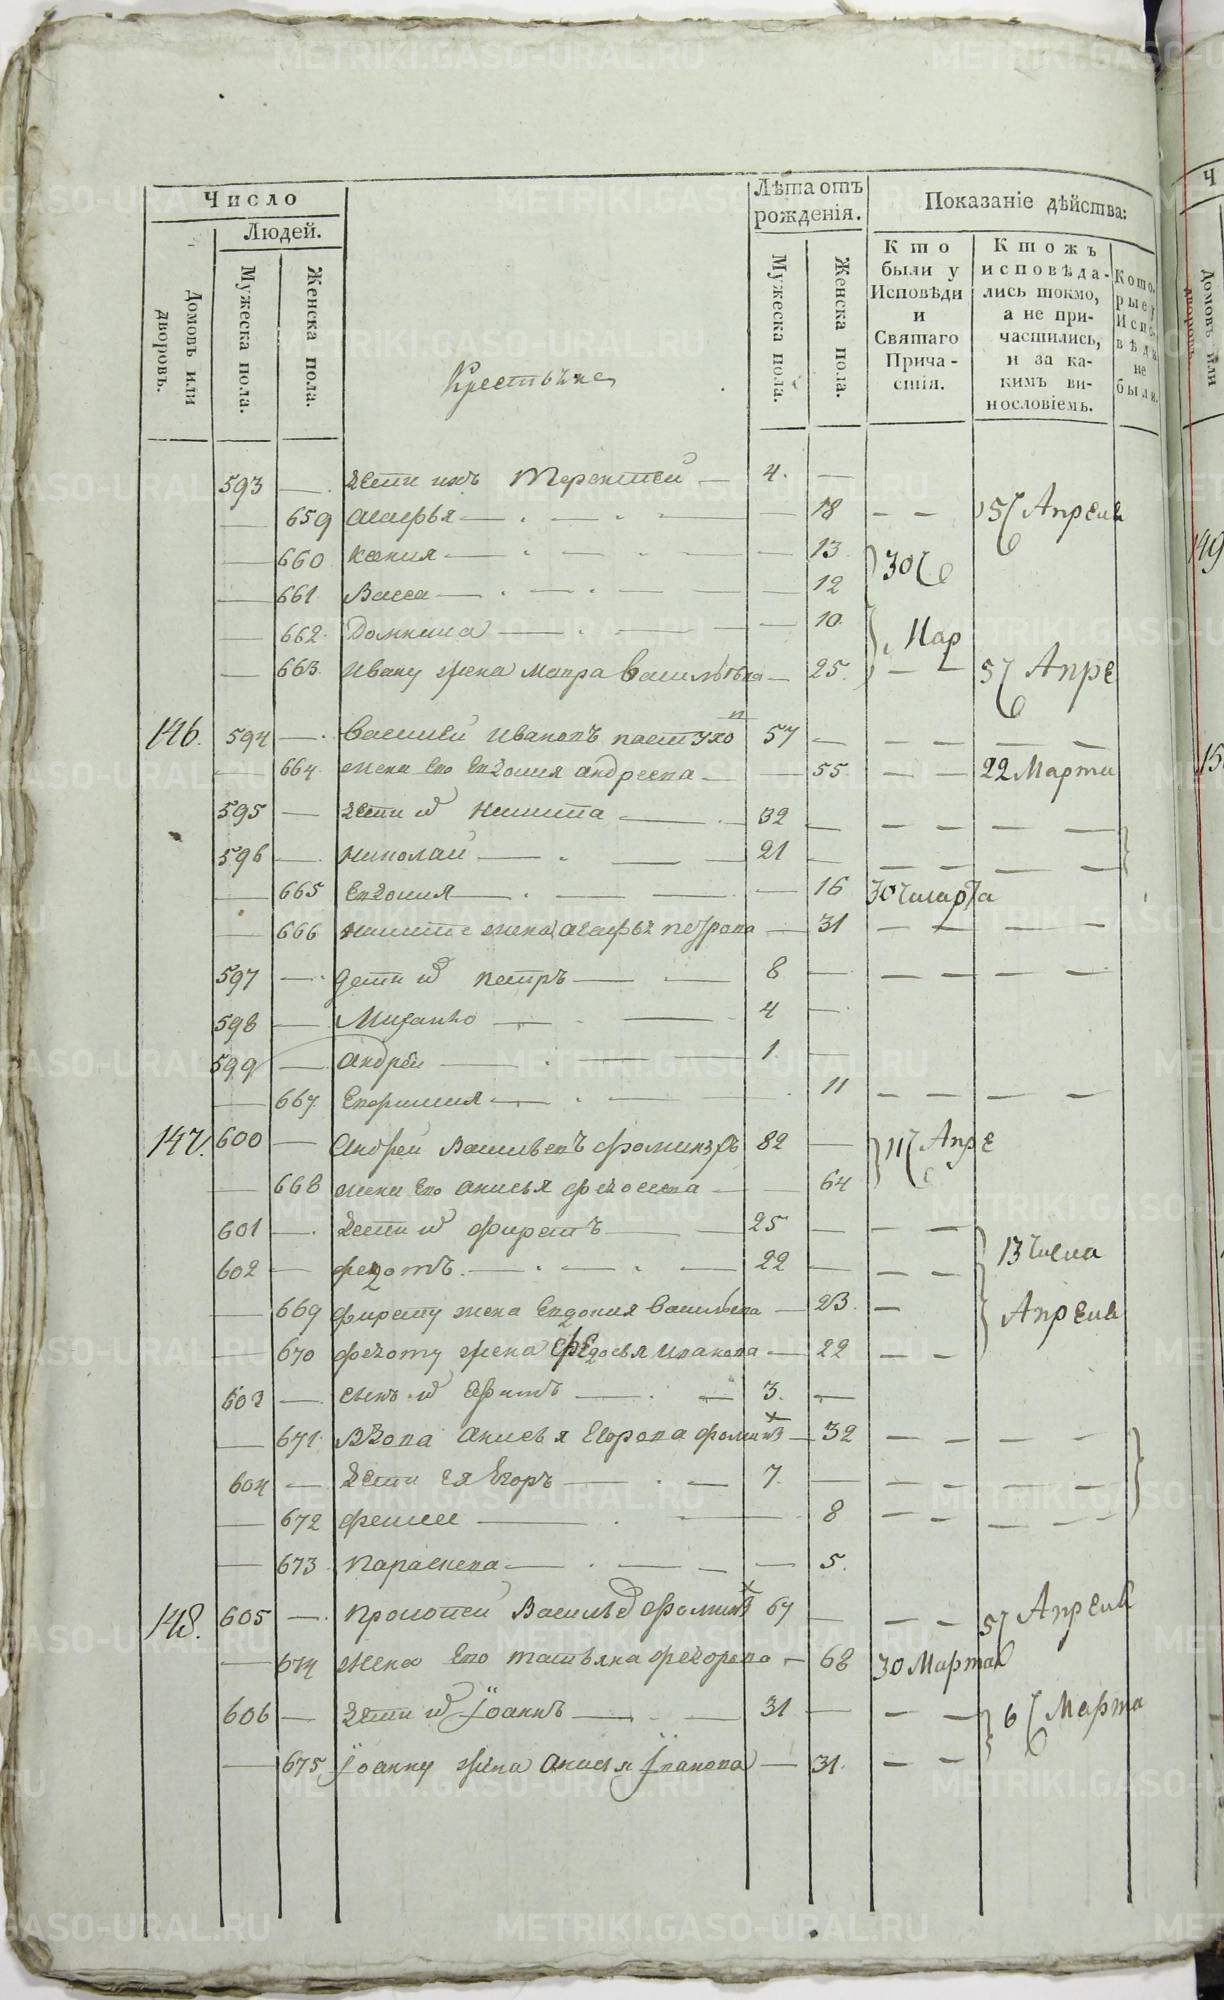 Число
Людей.
Домовъ или дворовъ.
Мужеска пола.
Женска пола.
Лѣта отъ рожденія.
Мужеска пола.
Женска пола.
Показаніе дѣйства:
Кто были у Исповѣди и Святаго Причастія.
Ктожъ исповѣда-лись токмо, а не при-частились, и за ка-кимъ ви-нословіемъ.
Кото-рые у Испо-вѣди не были.
Крестьяне
593 — дети ихъ Терентей — 4. —
— 659 агафья — — 18 — — 15 Апреля
— 660 ксения — — 13 30
— 661 Васса — — 12
— 662 Домника — — 10 Мар
— 663 Ивану жена Мавра Васильевна — 25. — — 5 Апре
146. 594 — Василей Ивановъ пастухо 57 — — — — —
— 664 жена ево Евдокия андреева — — 55 — — 22 Марта
595 — дети их Никита — 32 — — — — —
596 — Николай — 21 — — — — —
— 665 Евдокия — — 16 30 числа Марта
— 666 Никите жена агафья петрова — 31 — — — —
597 — дети их петръ — 8 — — — — —
598 — — 4 —
599 — андрей — 1 —
— 667 — 11 — — — —
147. 600 — Андрей Васильевъ 82 — 11 Апре
— 668 жена ево анисья федосеева — — 64
601 — дети их фирстъ — 25 — — — 13 числа
602 — федотъ — 22 — — —
— 669 фирсту жена Евдокия Васильева — 23. — Апреля
— 670 федоту жена федосья иванова — 22 — —
603 — сынъ их — 3. —
— 671 вдова анисья Егорова — 32 — — — —
604 — дети ея Егоръ — 7. — — — — —
— 672 — — 8 — — — —
— 673 параскева — — 5.
148. 605 — прокопей Васильев 67 — — — 5 Апреля
— 674 жена ево татьяна федорова — 62 30 Марта
606 — дети их Iоаннъ — 31 — — — 6 Марта
— 675 Iоанну жена анисья Iванова — 31. — —
METRIKI.GASO-URAL.RU